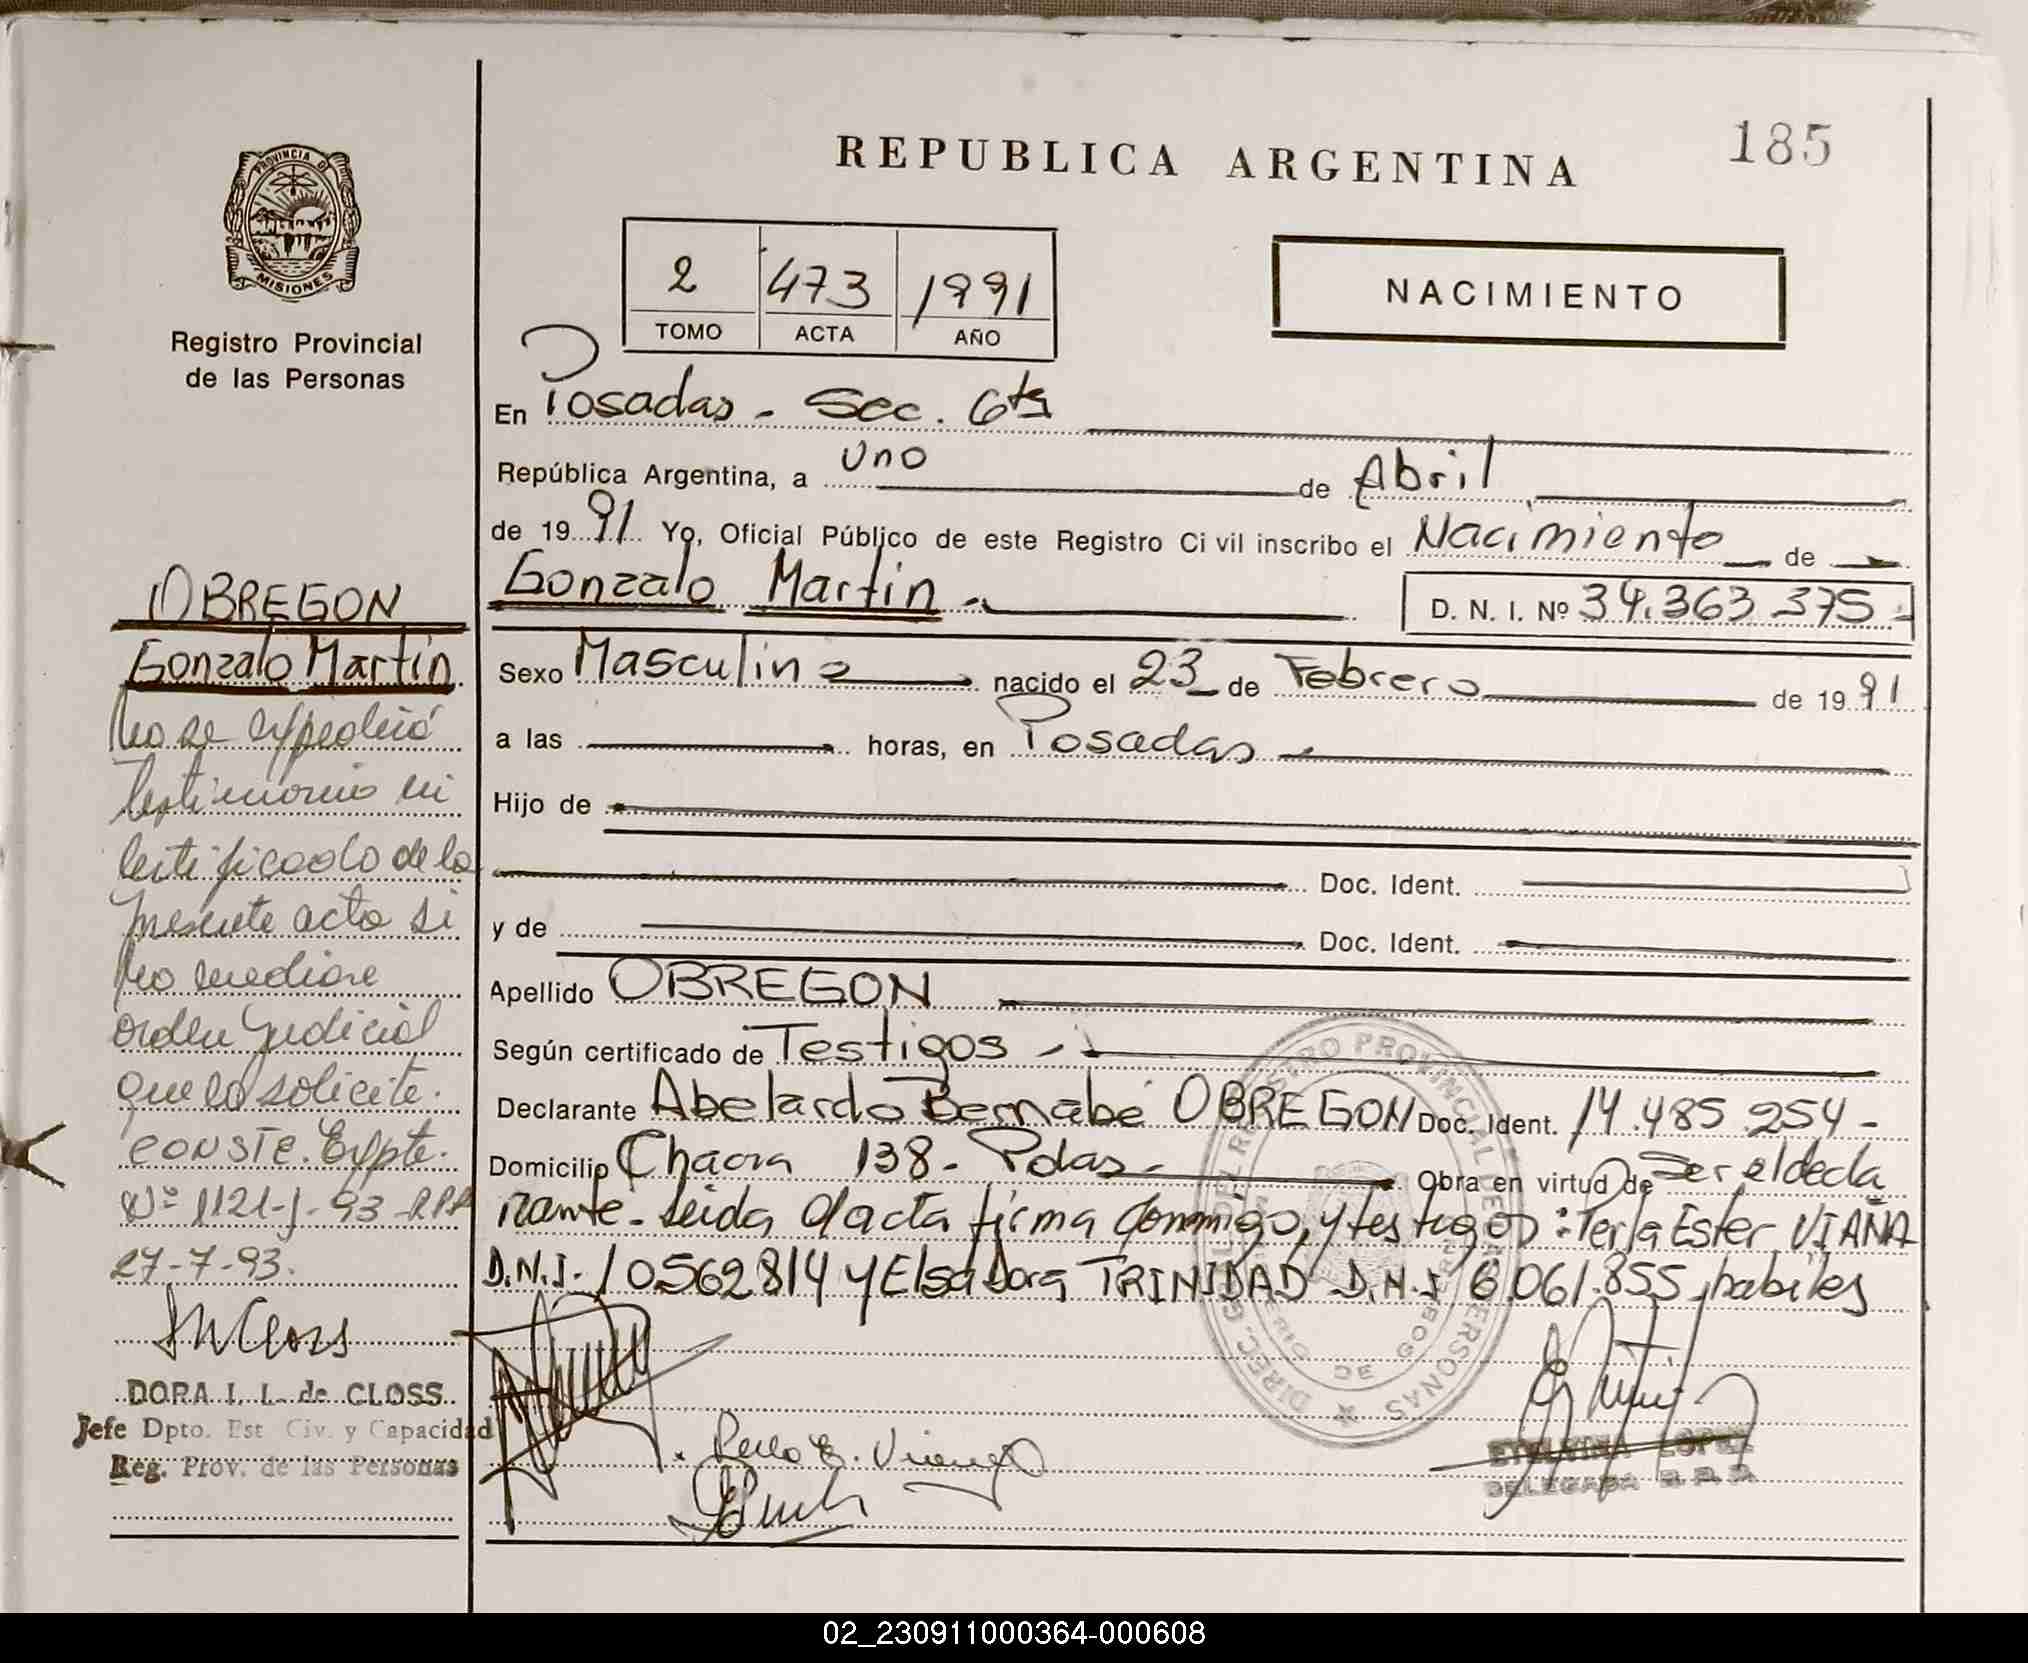 REPUBLICA ARGENTINA
185
PROVINCIA DE
MISIONES
Registro Provincial
de las Personas
2 473 1991
TOMO ACTA AÑO
NACIMIENTO
En Posadas - Sec. 6ta
República Argentina, a uno de Abril
de 1991 Yo, Oficial Público de este Registro Civil inscribo el Nacimiento de
Gonzalo Martin
D. N. I. Nº 34.363.375
Sexo Masculino nacido el 23 de Febrero de 1991
a las horas, en Posadas
Hijo de
Doc. Ident.
y de Doc. Ident.
Apellido OBREGON
Según certificado de Testigos
Declarante Abelardo Bernabé OBREGON Doc. Ident. 14.485.254-
Domicilio Chacra 138 - Pdas - Obra en virtud de Ser el decla
rante - Leida el acta firma conmigo, y testigos: Perla Ester VIAÑA
D.N.I. 10562814 y Elsa Dora TRINIDAD D.N.I 6.061.855, habiles
ETELVINA LOPEZ
DELEGADA R.P.P.
OBREGON
Gonzalo Martin.
No se expedirá
testimonio ni
certificado de la
presente acta si
no mediare
orden Judicial
que lo solicite.
CONSTE. Expte.
Nº 1121-J-93-RPP
27-7-93.
DORA I. L. de CLOSS
Jefe Dpto. Est Civ. y Capacidad
Reg. Prov. de las Personas
02_230911000364-000608